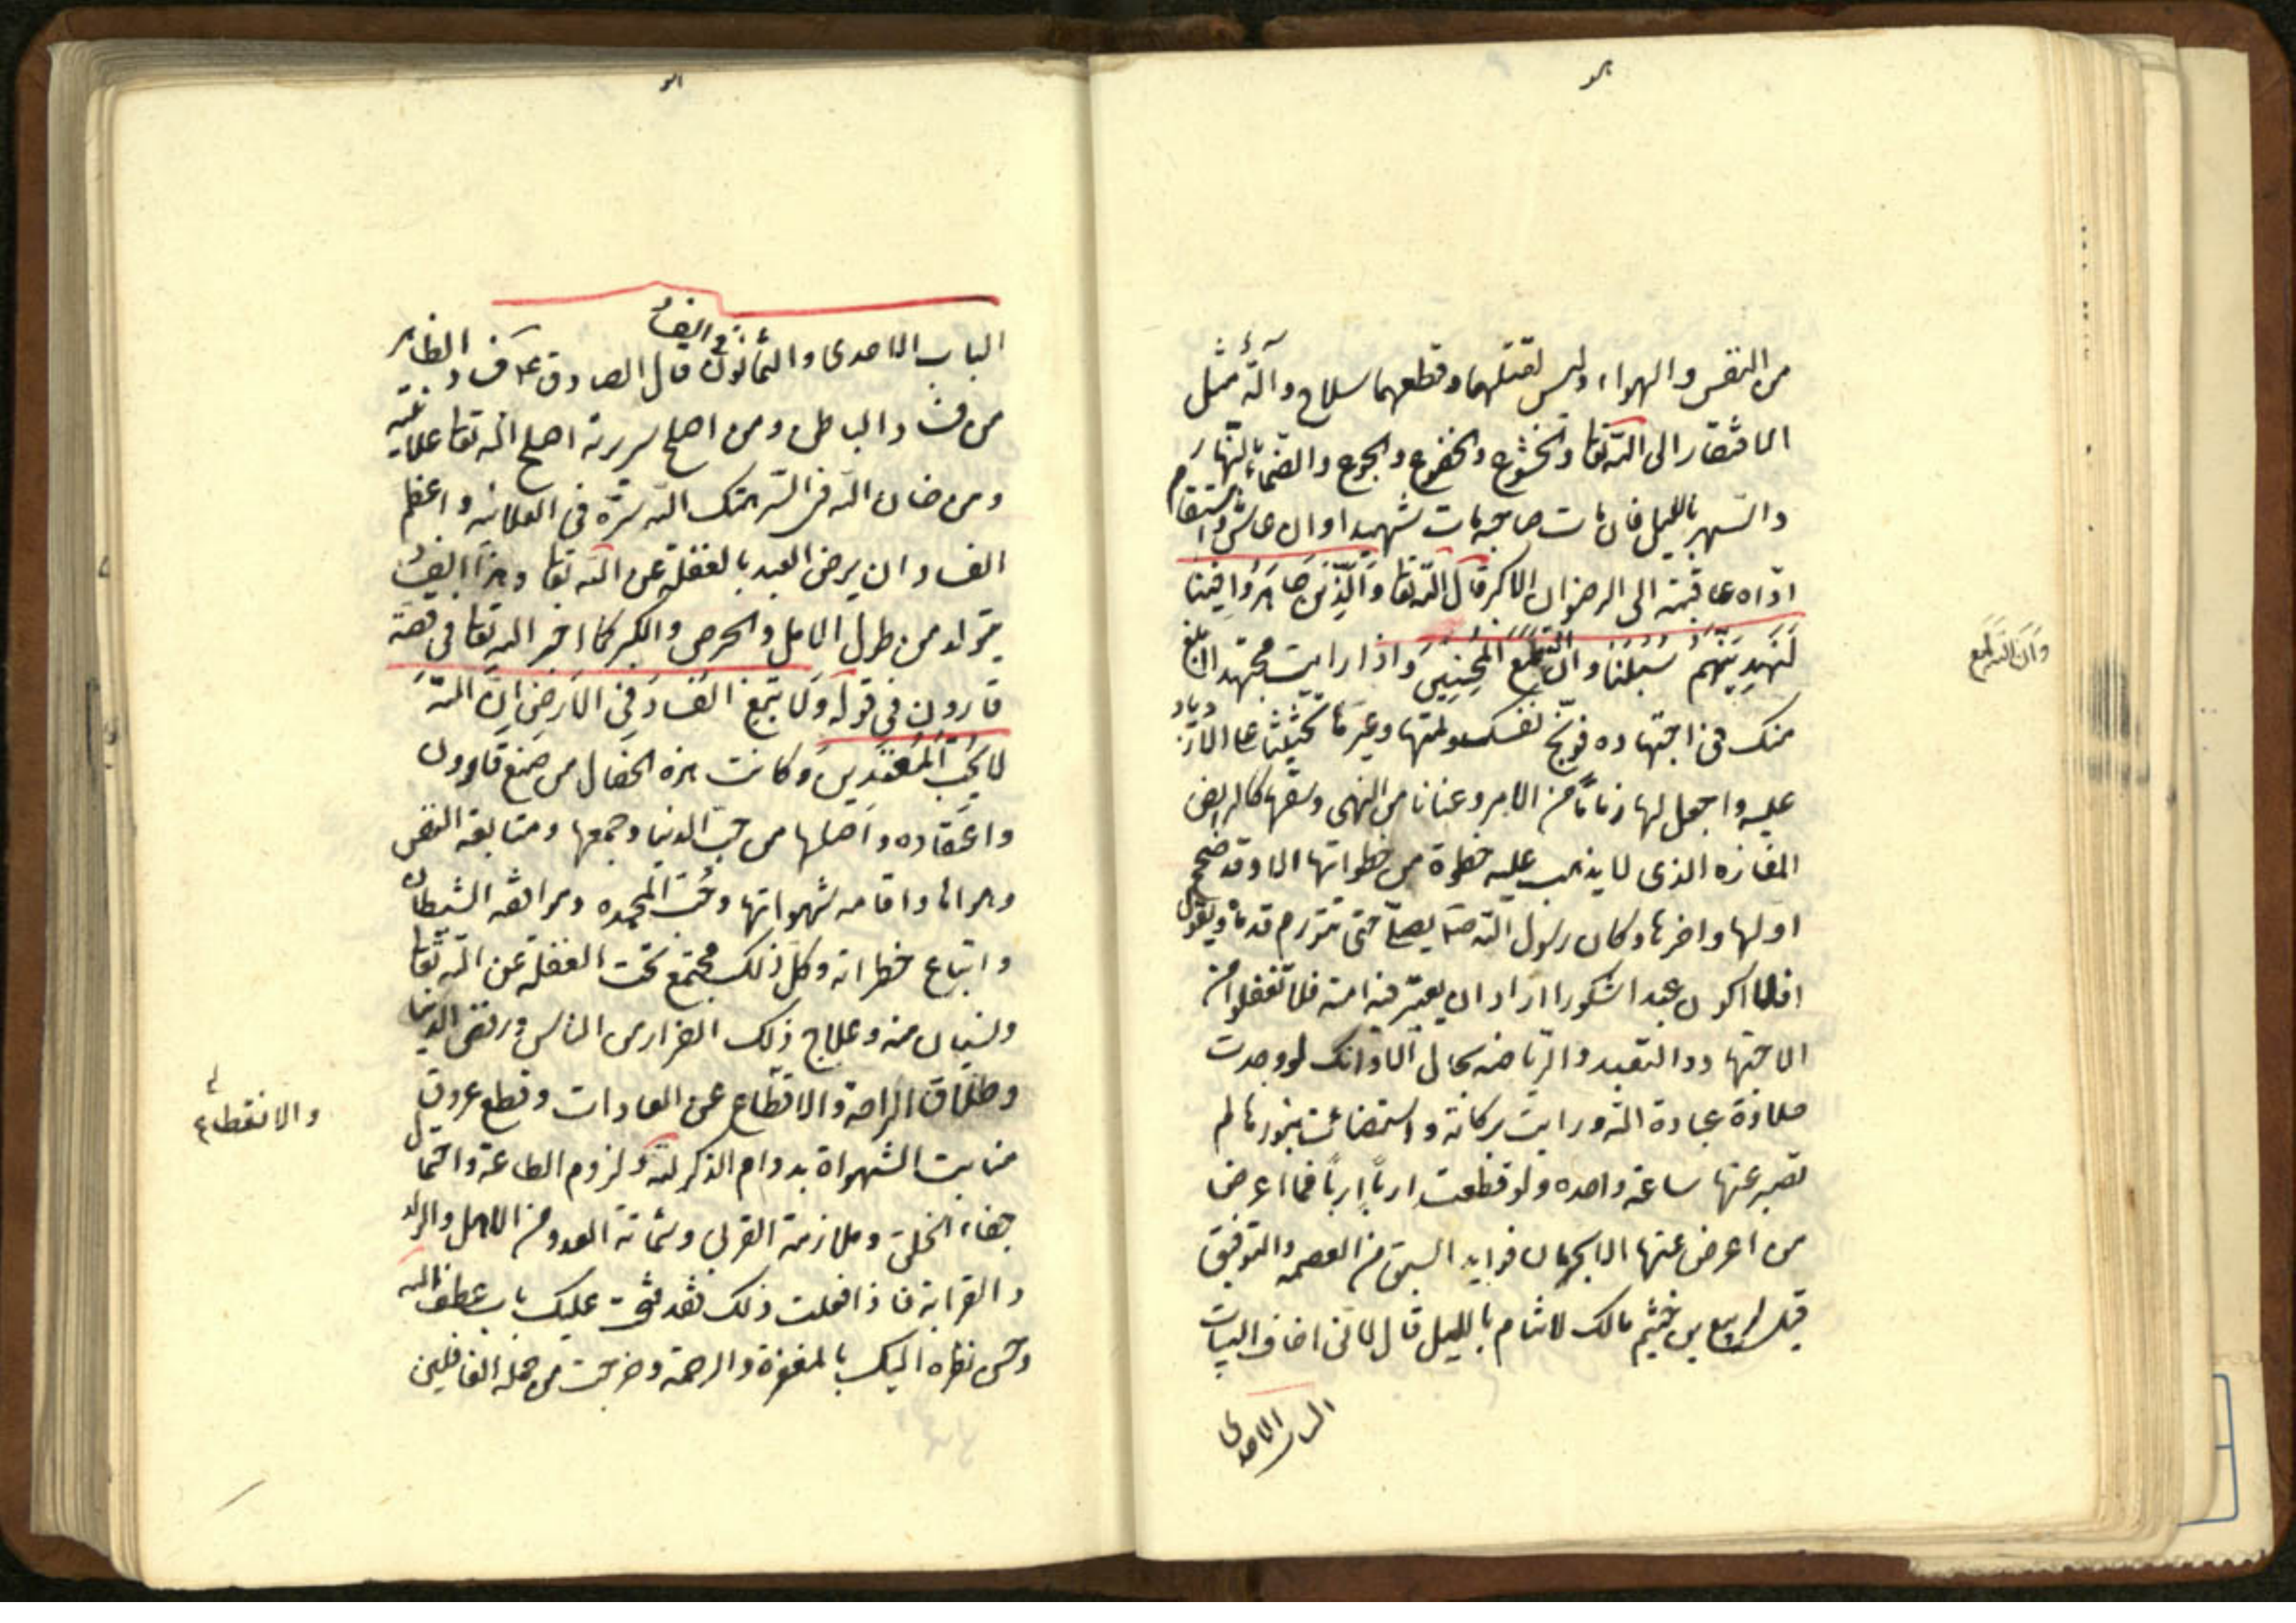 من النفس والهواء وليس لقتلهما وقطعهما سلاح وآلة مثل
الافتقار الى الله تعا والخشوع والخضوع والجوع والظماء بالنهار
والسهر بالليل فان مات صاحبه مات شهيدا وان عاش واستقام
ادّاه عاقبته الى الرضوان الاكبر قال الله تعا وَالَّذينَ جَاهَدُوا فِينَا
لَنَهدِيَنَّهُم سُبُلَنَا وان الله لمع المُحسِنِينَ واذا رايت مجتهدا ابلغ
وَاَنَّ اللّهَ لَمع
منك في اجتهاده فوبّخ نفسك ولمها وعيّرها تحثيثا على الازدياد
عليه واجعل لها زماماً من الامر وعنانا من النهى وسقها كالرايض
الفاره الذى لا يذهب عليه خطوة من خطواتها الا وقد صحح
اولها واخرها وكان رسول الله ص يصلّى حتى تتورم قدماه ويقول
افلا اكون عبدا شكورا اراد ان يعتبر به امته فلا تغفلوا من
الاجتهاد والتعبد والرياضه بحال الا وانك لو وجدت
حلاوة عبادة الله ورايت بركاته واستضائت بنورها لم
تصبر عنها ساعة واحده ولو قطعت ارباً إرباً فما اعرض
من اعرض عنها الا بحرمان فوايد السبق من العصمه والتوفيق
قيل لربيع بن خثيم مالك لا تنام بالليل قال لانى اخاف البيات
الباب الاحدى
الباب الاحدى والثمانون في الفساد قال الصادق ع فساد الظاهر
من فساد الباطن ومن اصلح سريرته اصلح الله تعا علانيته
ومن خان الله في السر هتك الله سرّه في العلانيه واعظم
الفساد ان يرضى العبد بالغفلة عن الله تعا وهذا الفساد
يتولد من طول الامل والحرص والكبر كما اخبر الله تعا في قصّة
قارون في قوله وَلَا تَبغِ الفَسَادَ فِي الاَرضِ اِنَّ اللهَ
لايُحِبُّ المُفسِدِينَ وكانت هذه الخصال من صنع قارون
واعتقاده واَصلها من حبّ الدنيا وجمعها ومتابعة النفس
وهواها واقامه شهواتها وحُبّ المحمده وموافقه الشيطان
واتباع خطواته وكلّ ذلك مجتمع تحت الغفله عن الله تعا
ونسيان مننه وعلاج ذلك الفرار من الناس ورفض الدنيا
وطلاق الراحة والاقطاع عن العادات وقطع عروق
والانقطاع
منابت الشهواة بدوام الذكر لله ولزوم الطاعة واحتمال
جفاء الخلق وملازمة القربى وشماتة العدو من الاهل والولد
والقرابة فاذا فعلت ذلك فقد فتحت عليك باب عطف الله
وحسن نظره اليك بالمغفرة والرحمة وخرجت من جمله الغافلين